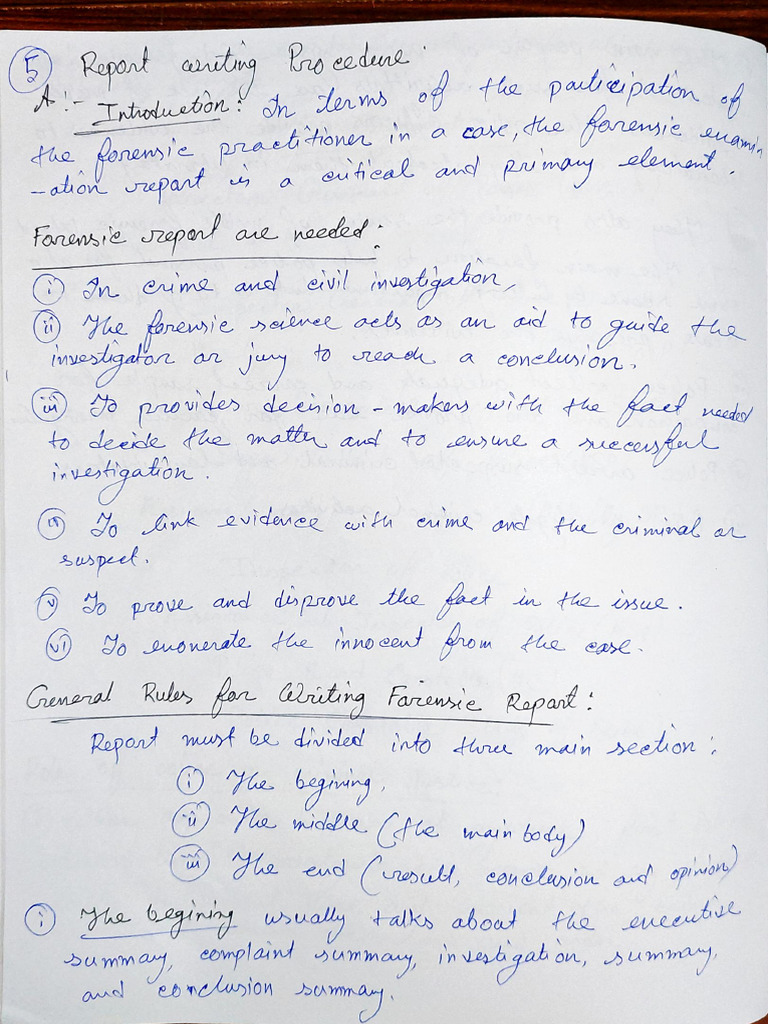 5 Report writing Procedure.
A:- Introduction: In terms of the participation of
the forensic practitioner in a case, the forensic examin
-ation report is a critical and primary element.
Forensic report are needed:
i In crime and civil investigation,
ii The forensic science acts as an aid to guide the
investigator or jury to reach a conclusion.
iii To provides decision-makers with the fact needed
to decide the matter and to ensure a successful
investigation.
iv To link evidence with crime and the criminal or
suspect.
v To prove and disprove the fact in the issue.
vi To exonerate the innocent from the case.
General Rules for Writing Forensic Report:
Report must be divided into three main section:
i The begining,
ii The middle (the main body)
iii The end (result, conclusion and opinion)
i The begining usually talks about the executive
summary, complaint summary, investigation, summary,
and conclusion summary.